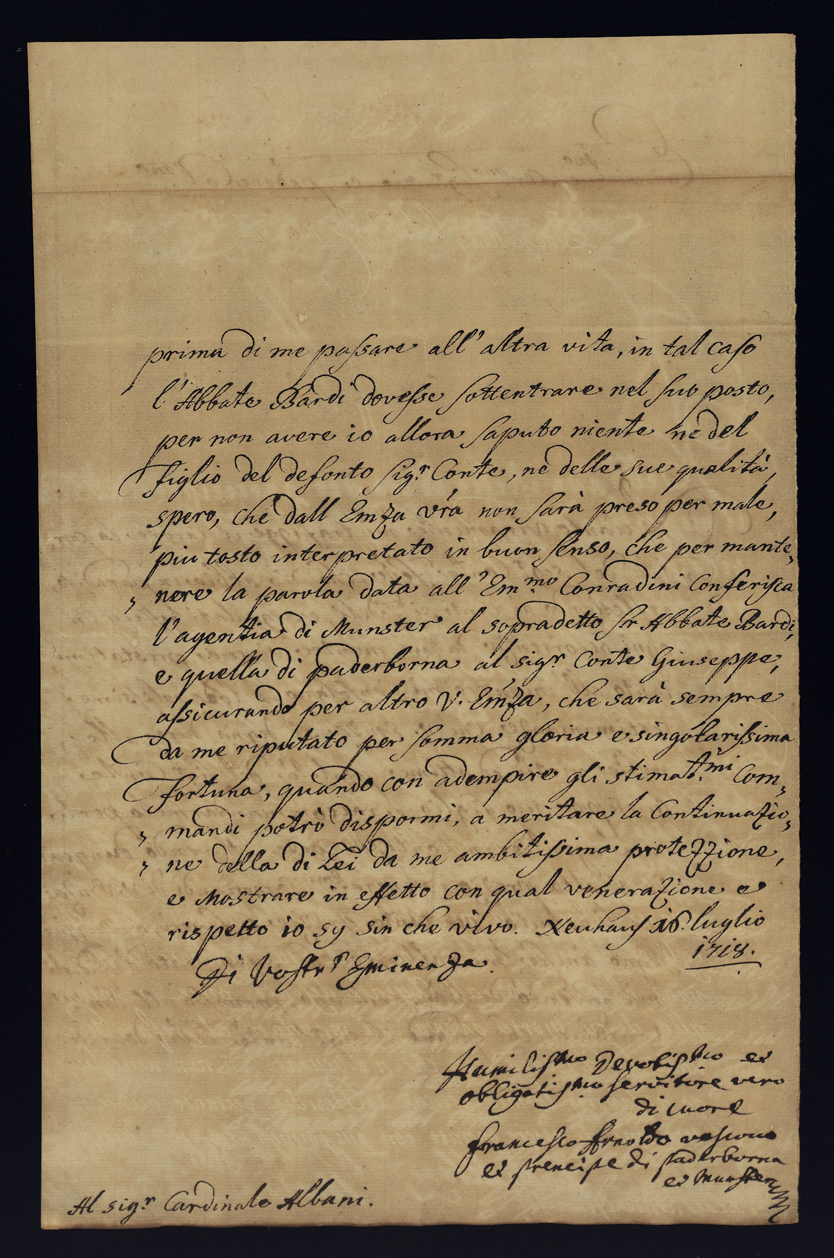 prima di me passare all' altra vita, in tal caso
l'Abbate Bardi dovesse sottentrare nel suo posto,
per non avere io allora saputo niente ne del
figlio del defonto Sigr Conte, ne delle sue qualità,
spero, che dall Emza vra non sarà preso per male,
piu tosto interpretato in buon senso, che per mante„
„ nere la parola data all' Emmo Conradini Conferisca
l'agentia di Munster al sopradetto Sr Abbate Bardi,
e quella di paderborna al sigr Conte Giuseppe,
assicurando per altro V. Emza, che sarà sempre
da me riputato per somma gloria e singolarissima
fortuna, quando con adempire gli stimatmi Com„
„ mandi potrò dispormi, a meritare la Continuazio„
„ ne della di Lei da me ambitissima protezzione,
e Mostrare in effetto con qual venerazione e
rispetto io sy sin che vivo. Neuhaus 16. luglio
1718.
Di Vostra Eminenza.
Humilissmo Devotissmo et
obligatissmo servitore vero
di cuore
francesco Arnoldo vescovo
et prencipe di paderborna
et Munster
Al sigr Cardinale Albani.